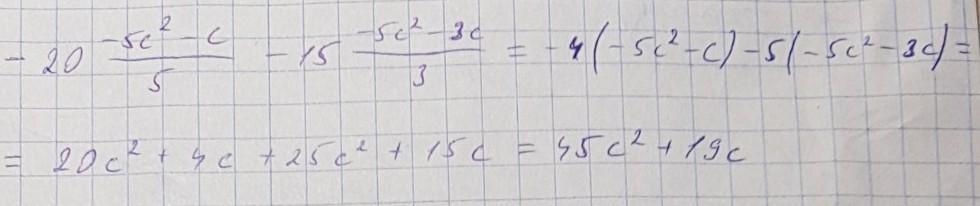 - 20 \frac{-5c^2 - c}{5} - 15 \frac{-5c^2 - 3c}{3} = -4(-5c^2 - c) - 5(-5c^2 - 3c) =
= 20c^2 + 4c + 25c^2 + 15c = 45c^2 + 19c